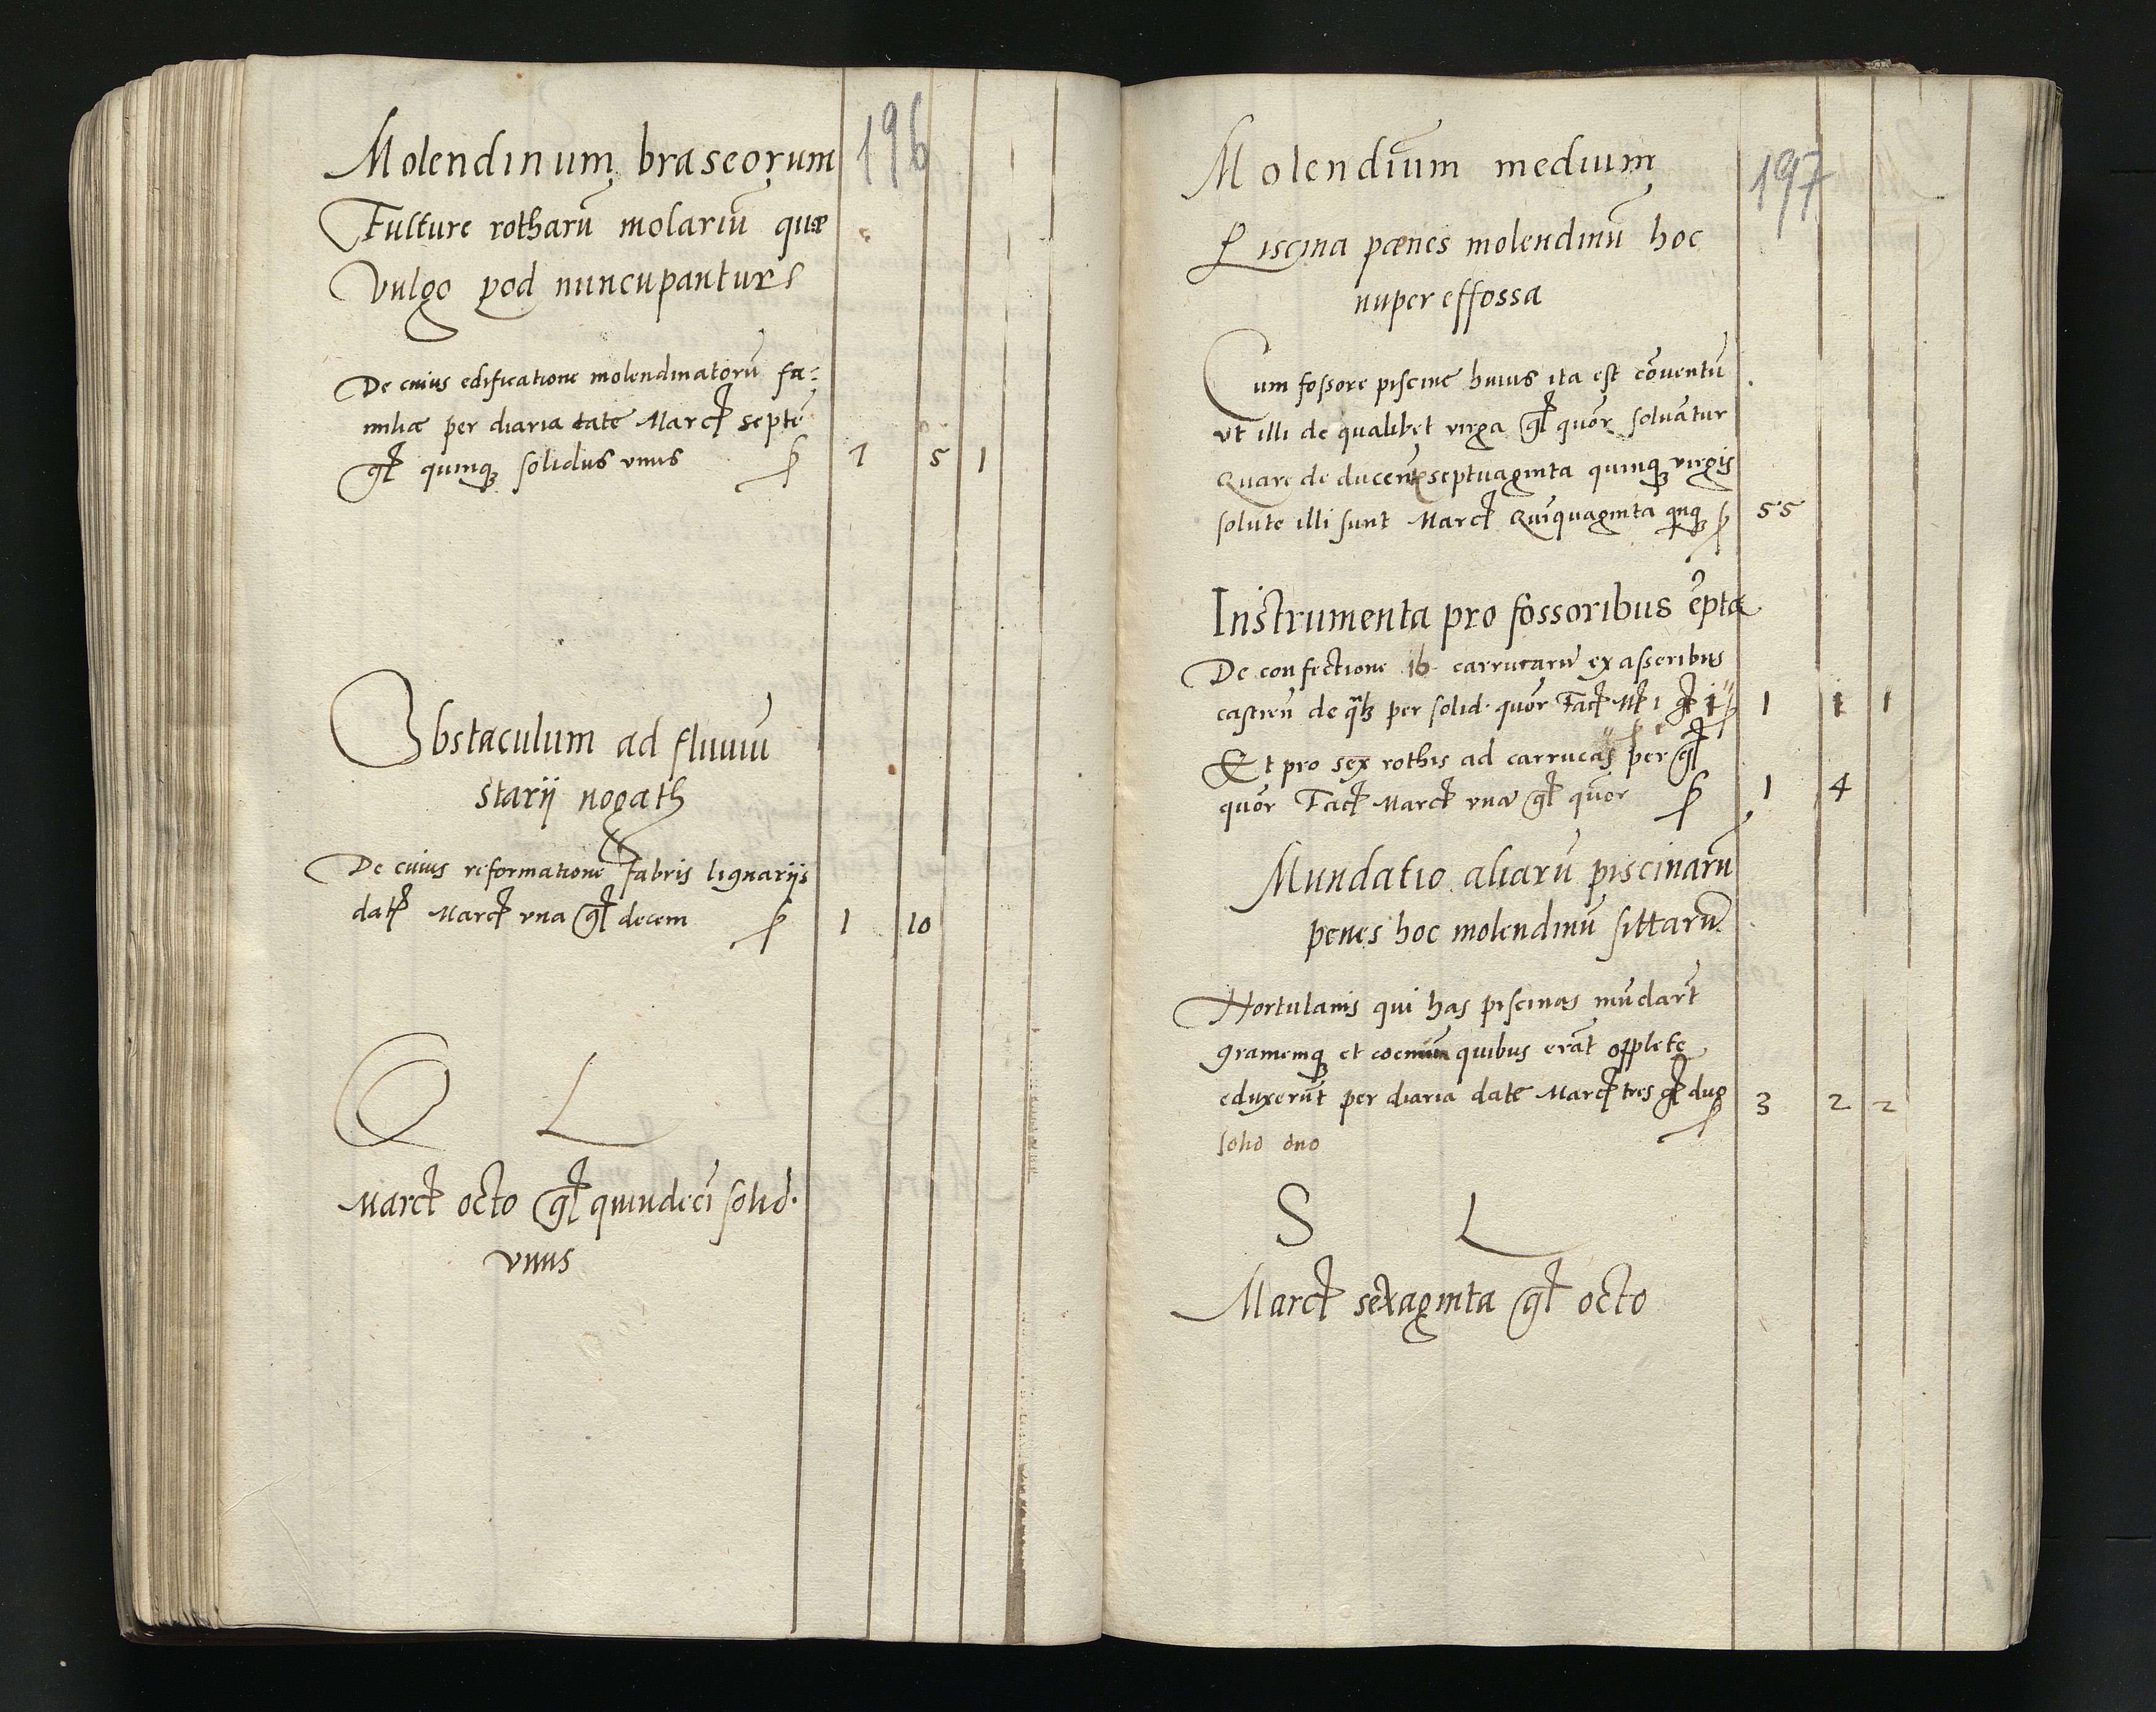 196
Molendinum braseorum
Fulture rotharū molariū quæ
vulgo pod nuncupantur
De cuius edificatione molendinatorū fa:
miliæ per diaria date Marcę septē
gł quinqꝫ solidus vnus ꝑ 7 5 1
Obstaculum ad fluuiū
starij nogath
De cuius reformatione fabris lignarijs
datę Marcę vna gł decem ꝑ 1 10
Q L
Marcę octo gł quindecī solid.
vnus
197
Molendiūm medium
Piscina pænes molendinū hoc
nuper effossa
Cum fossore piscine huius ita est cōuentū
vt illi de qualibet virga gł quōr soluātur
Quare de ducent septuaginta quinqꝫ virgis
solute illi sunt Marcę Quīquaginta qnqꝫ ꝑ 55
Instrumenta pro fossoribus ēpta
De confectione 16 carrucarū ex asseribus
castreñ de qƀꝫ per solid. quōr Facę Mę 1 gł 1 ꝑ 1 1 1
Et pro sex rothis ad carrucas per gł
quōr Facę Marcę vnā gł quōr ꝑ 1 4
Mundatio aliarū piscinarū
penes hoc molendinū sittarū
Hortulanis qui has piscinas mūdarūt
gramenqꝫ et coenum quibus erāt opplete
eduxerūt per diaria date Marcę tres gł duo ꝑ 3 2 2
solid duo
S L
Marcę sexaginta gł octo